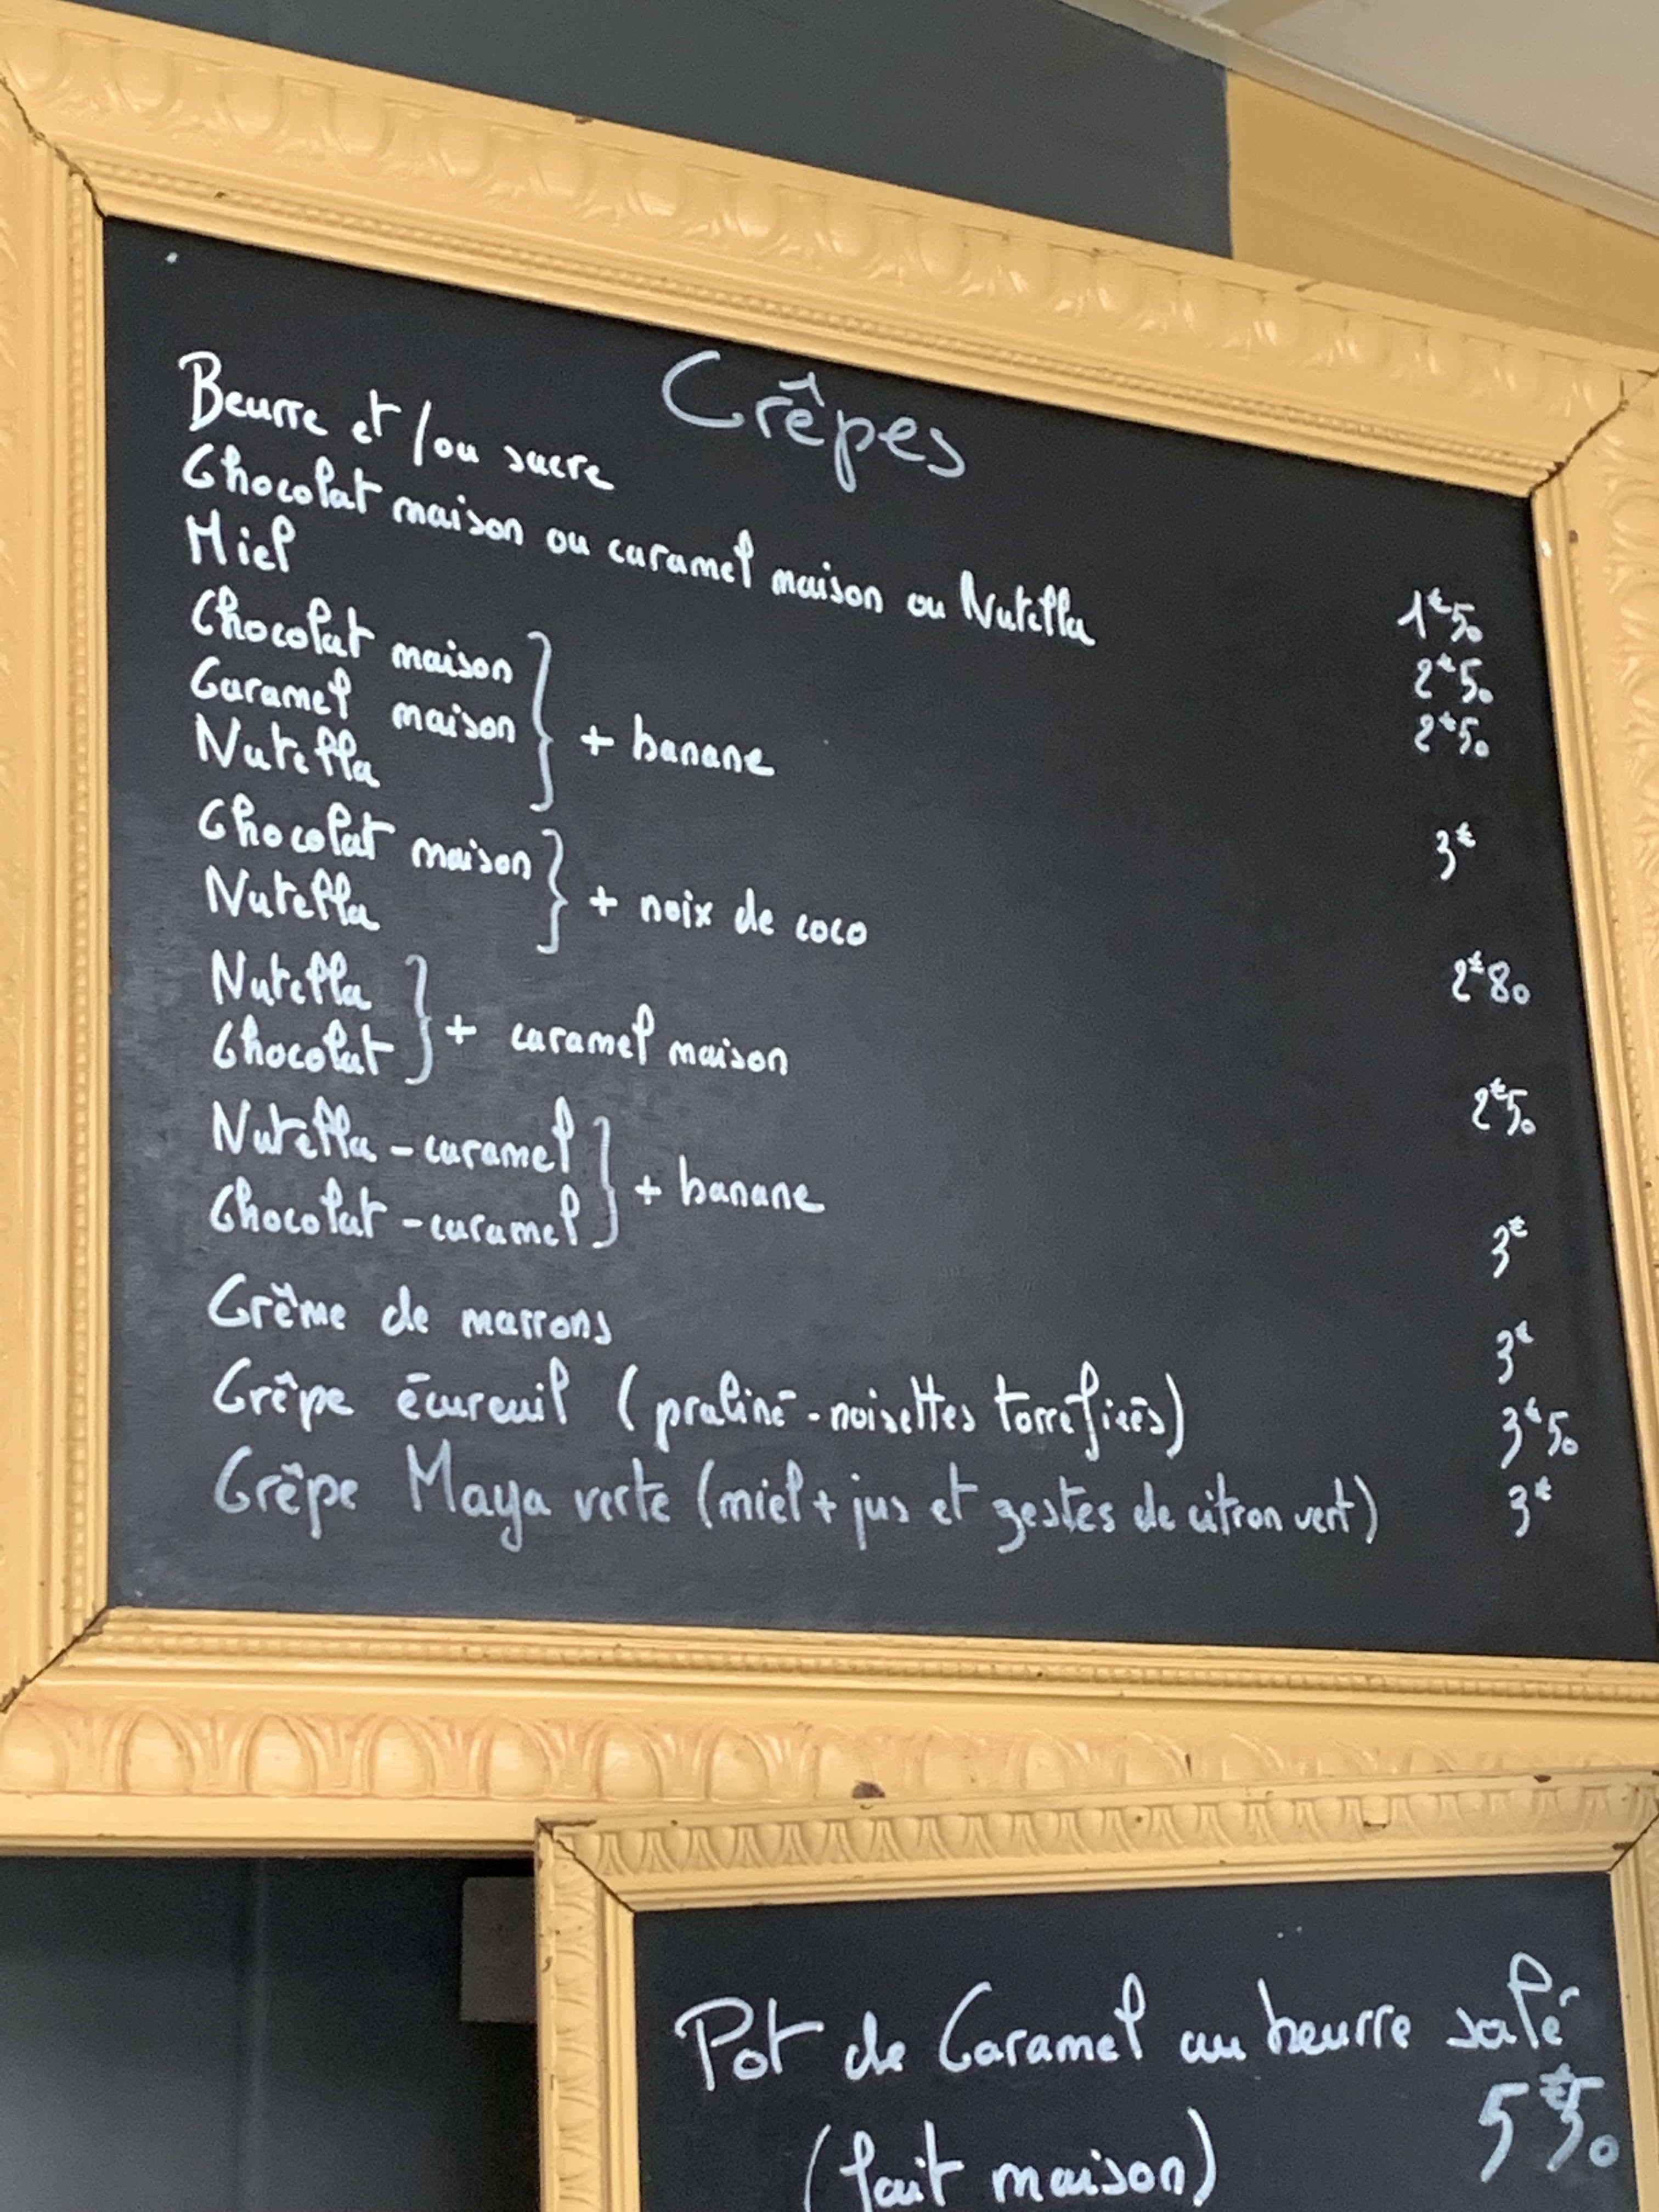 Crêpes
Beurre et/ou sucre 1€50
Chocolat maison ou caramel maison ou Nutella 2€50
Miel 2€50
Chocolat maison
Caramel maison } + banane 3€
Nutella
Chocolat maison } + noix de coco 2€80
Nutella
Nutella } + caramel maison 2€50
Chocolat
Nutella - caramel } + banane 3€
Chocolat - caramel
Crème de marrons 3€
Crêpe écureuil (praliné - noisettes torrefiées) 3€50
Crêpe Maya verte (miel + jus et zestes de citron vert) 3€
Pot de Caramel au beurre salé
5€50
(fait maison)